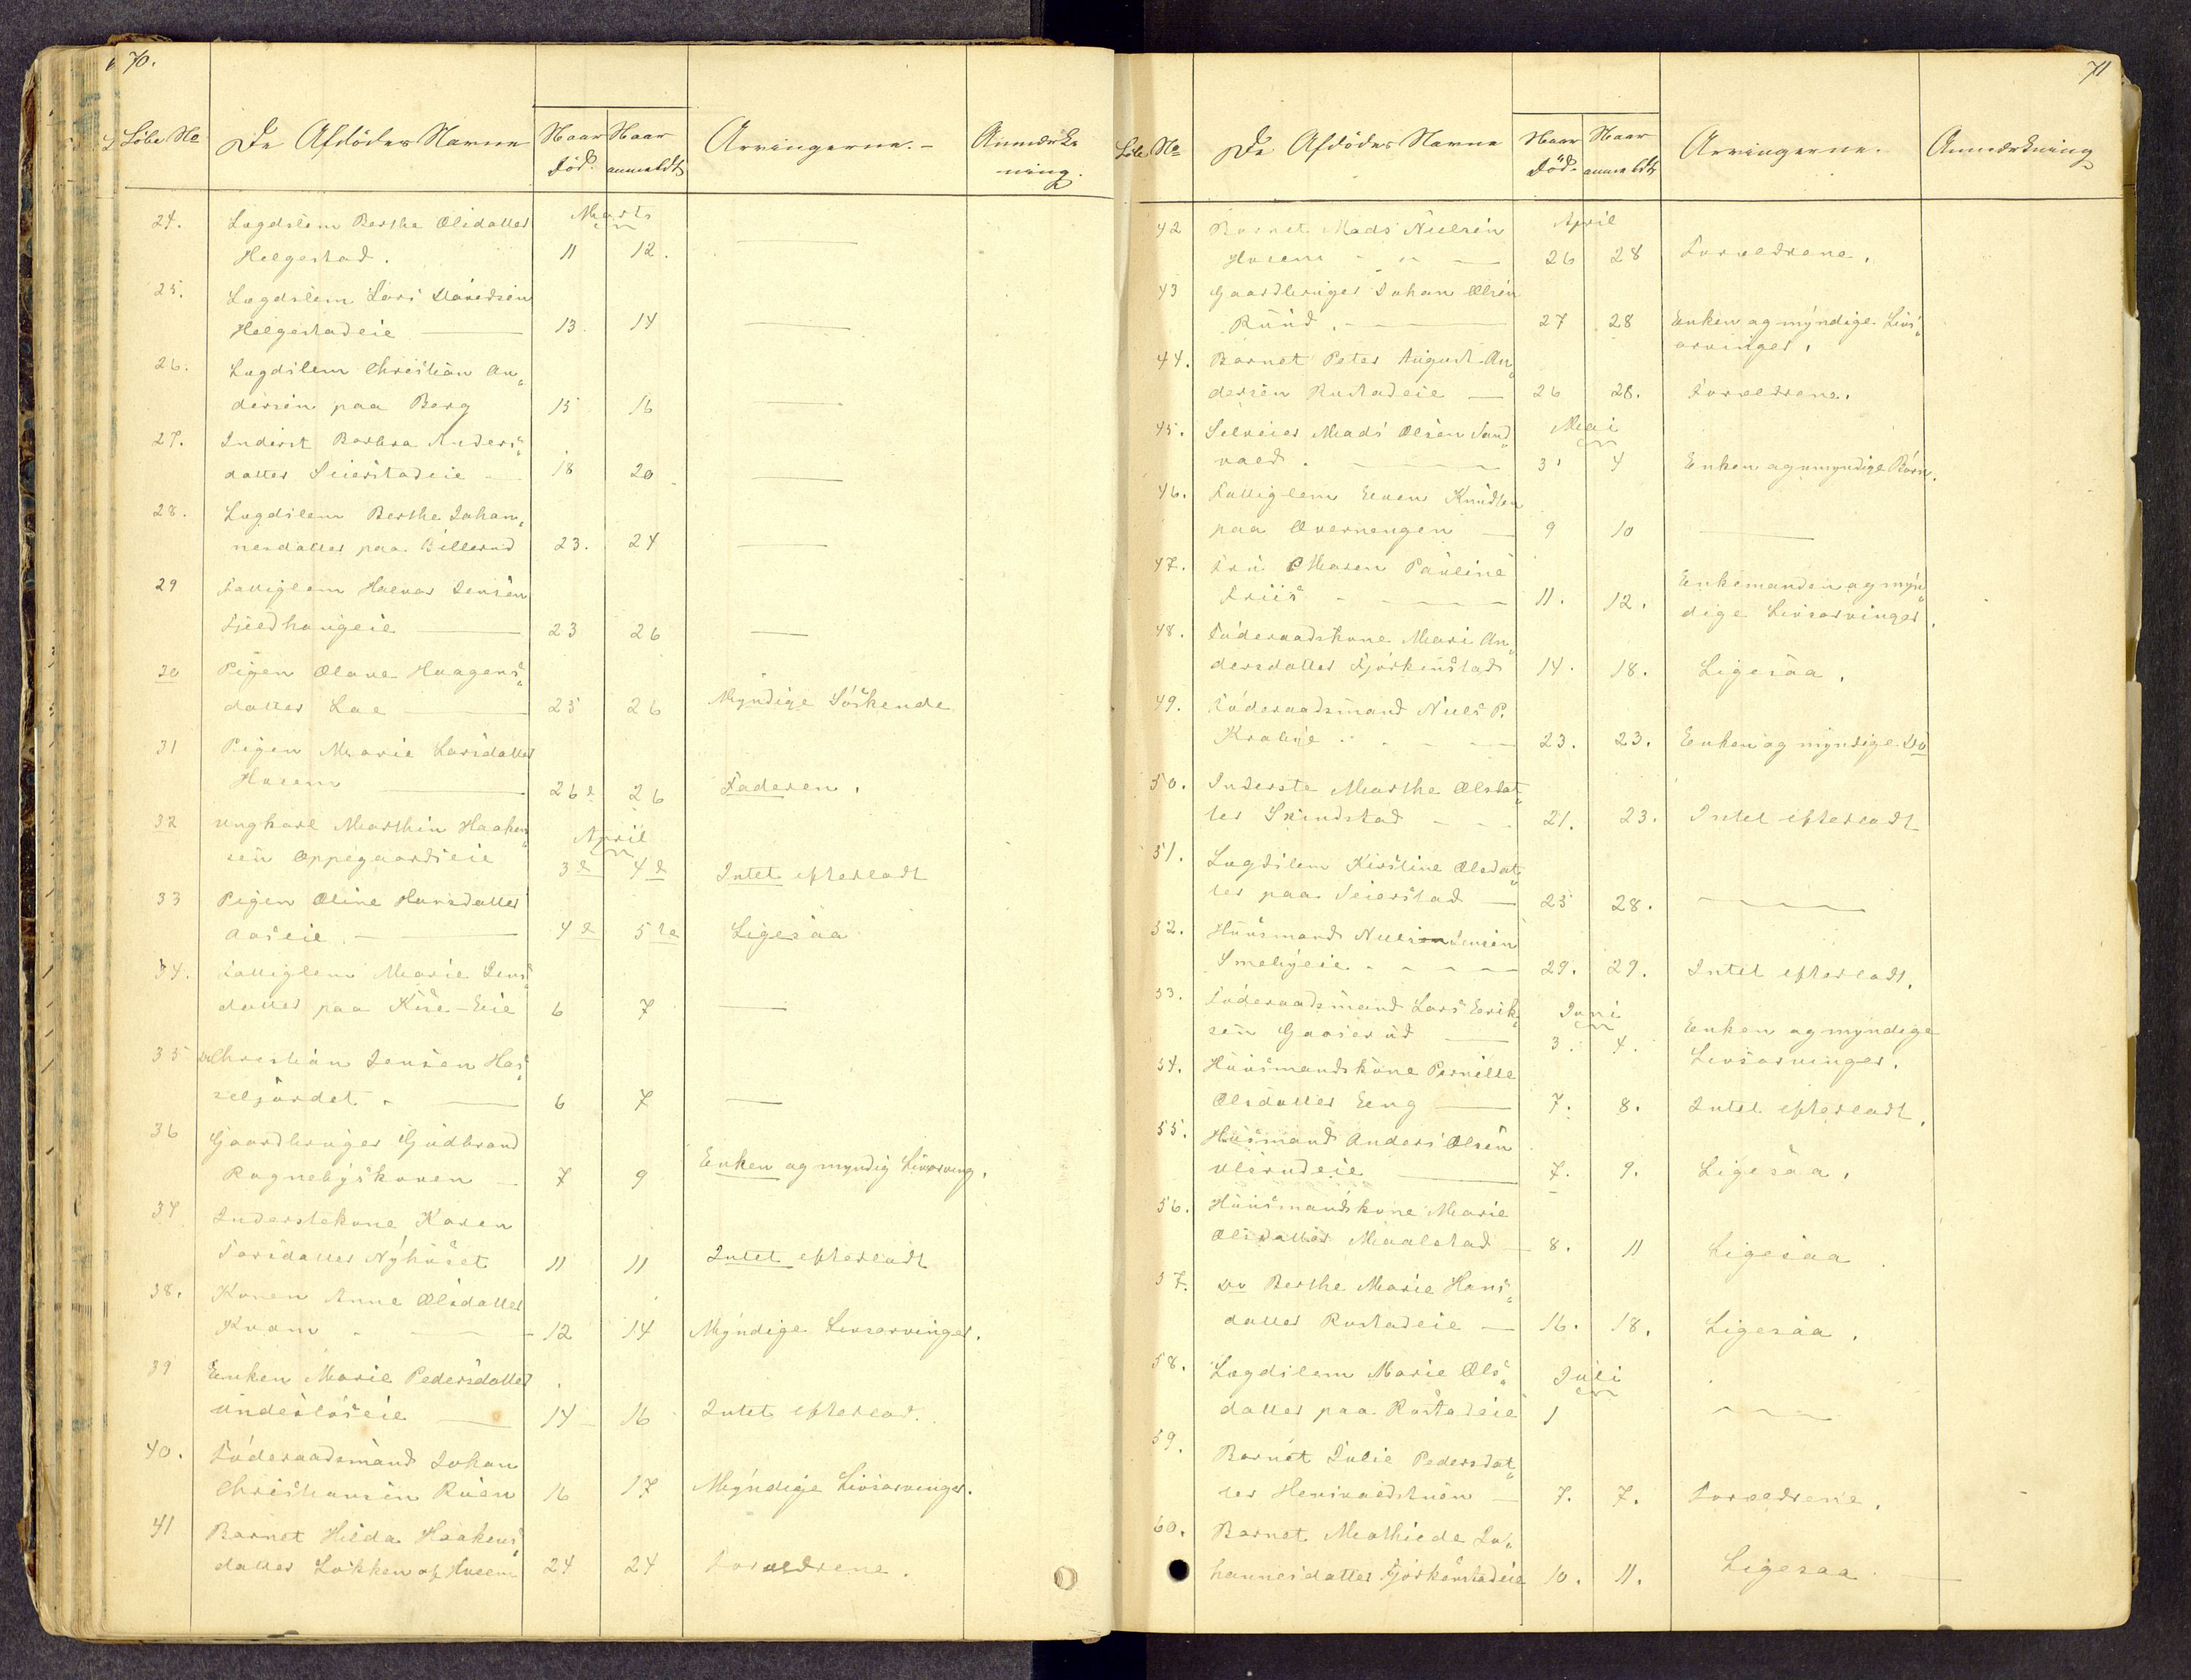 70.
Löbe No De Afdödes Navne Naar Död. Naar anmeldt Arvingerne.- Anmærkning.
24. Lægdslem Berthe Olsdatter Marts
Helgestad. 11 12.
25. Lægdslem Lars Davidsen
Helgestadeie 13. 14
26. Lægdslem Christian An„
dersen paa Berg 15 16
27. Inderst Barbra Anders„
datter Seierstadeie 18 20
28. Lægdslem Berthe Johan„
nesdatter paa Billerud 23. 24
29 Fattiglem Halvor Jensen
Fjeldhaugeie 23 26
30 Pigen Olava Haagens„
datter Lae 25 26 Myndige Söskende
31 Pigen Marie Larsdatter
Horem 26de 26 Faderen.
32 Ungkarl Marthin Haaken„ April
sen Oppegaardseie 3de 4de Intet efterladt
33 Pigen Oline Hansdatter
Aaseie 4de 5te Ligesaa
34. Fattiglem Marie Jens„
datter paa Kise-Eie 6 7
35 Do Christian Jensen Has„
seljordet. 6 7
36 Gaardbruger Gudbrand
Rognebyskoven 7 9 Enken og myndig Livsarving.
37 Inderstekone Karen
Larsdatter Nyhuset 11 11 Intet efterladt
38. Konen Anne Olsdatter
Kvam 12 14 Myndige Livsarvinger.
39 Enken Marie Pedersdatter
Underlöseie 14 16 Intet efterlad.
40. Föderaadsmand Johan
Christiansen Ruen 16 17 Myndige Livsarvinger.
41 Barnet Hilda Haakens„
datter Løkken af 24 24 Forældrene.
71
Löbe No De Afdödes Navne Naar Död. Naar anmeldt Arvingerne. Anmærkning
42 Barnet Mads Nielsen April
Horem 26 28 Forældrene.
43 Gaardbruger Johan Olsen
Ruud. 27 28 Enken og myndige Livs„
arvinger.
44. Barnet Peter August An„
dersen Rustadeie 26 28. Forældrene.
45. Selveier Mads Olsen Sand„ Mai
vold. 3' 4 Enken og umyndige Börn.
46. Fattiglem Even Knudsen
paa Overnengen 9 10
47. Fru Maren Pauline
Friis 11. 12. Enkemanden og myn„
dige Livsarvinger.
48. Föderaadskone Mari An„
dersdatter Fjörkenstad 14. 18. Ligesaa.
49. Föderaadsmand Niels P.
Krabye 23. 23. Enken og myndige Do
50. Inderste Marthe Olsdat„
ter Skindstad 21. 23. Intet efterladt
51. Lægdslem Kirstine Olsdat„
ter paa Seierstad 25 28.
52. Huusmand Niels Jensen
Smebyeie 29. 29. Intet efterladt.
53. Föderaadsmand Lars Erik„ Juni
sen Gaaserud 3. 4. Enken og myndige
Livsarvinger.
54. Huusmandskone Pernille
Olsdatter Eeng 7. 8. Intet efterladt.
55. Husmand Anders Olsen
Ulsrudeie 7. 9. Ligesaa.
56. Huusmandskone Marie
Olsdatter Maalstad 8. 11 Ligesaa
57. Do Berthe Marie Hans„
datter Rustadeie 16. 18. Ligesaa.
58. Lægdslem Marie Ols„ Juli
datter paa Rustadeie 1
59. Barnet Julie Pedersdat„
ter Henivoldstuen 7. 7. Forældrene.
60. Barnet Mathilde Jo„
hannesdatter Fjörkenstadeie 10. 11. Ligesaa